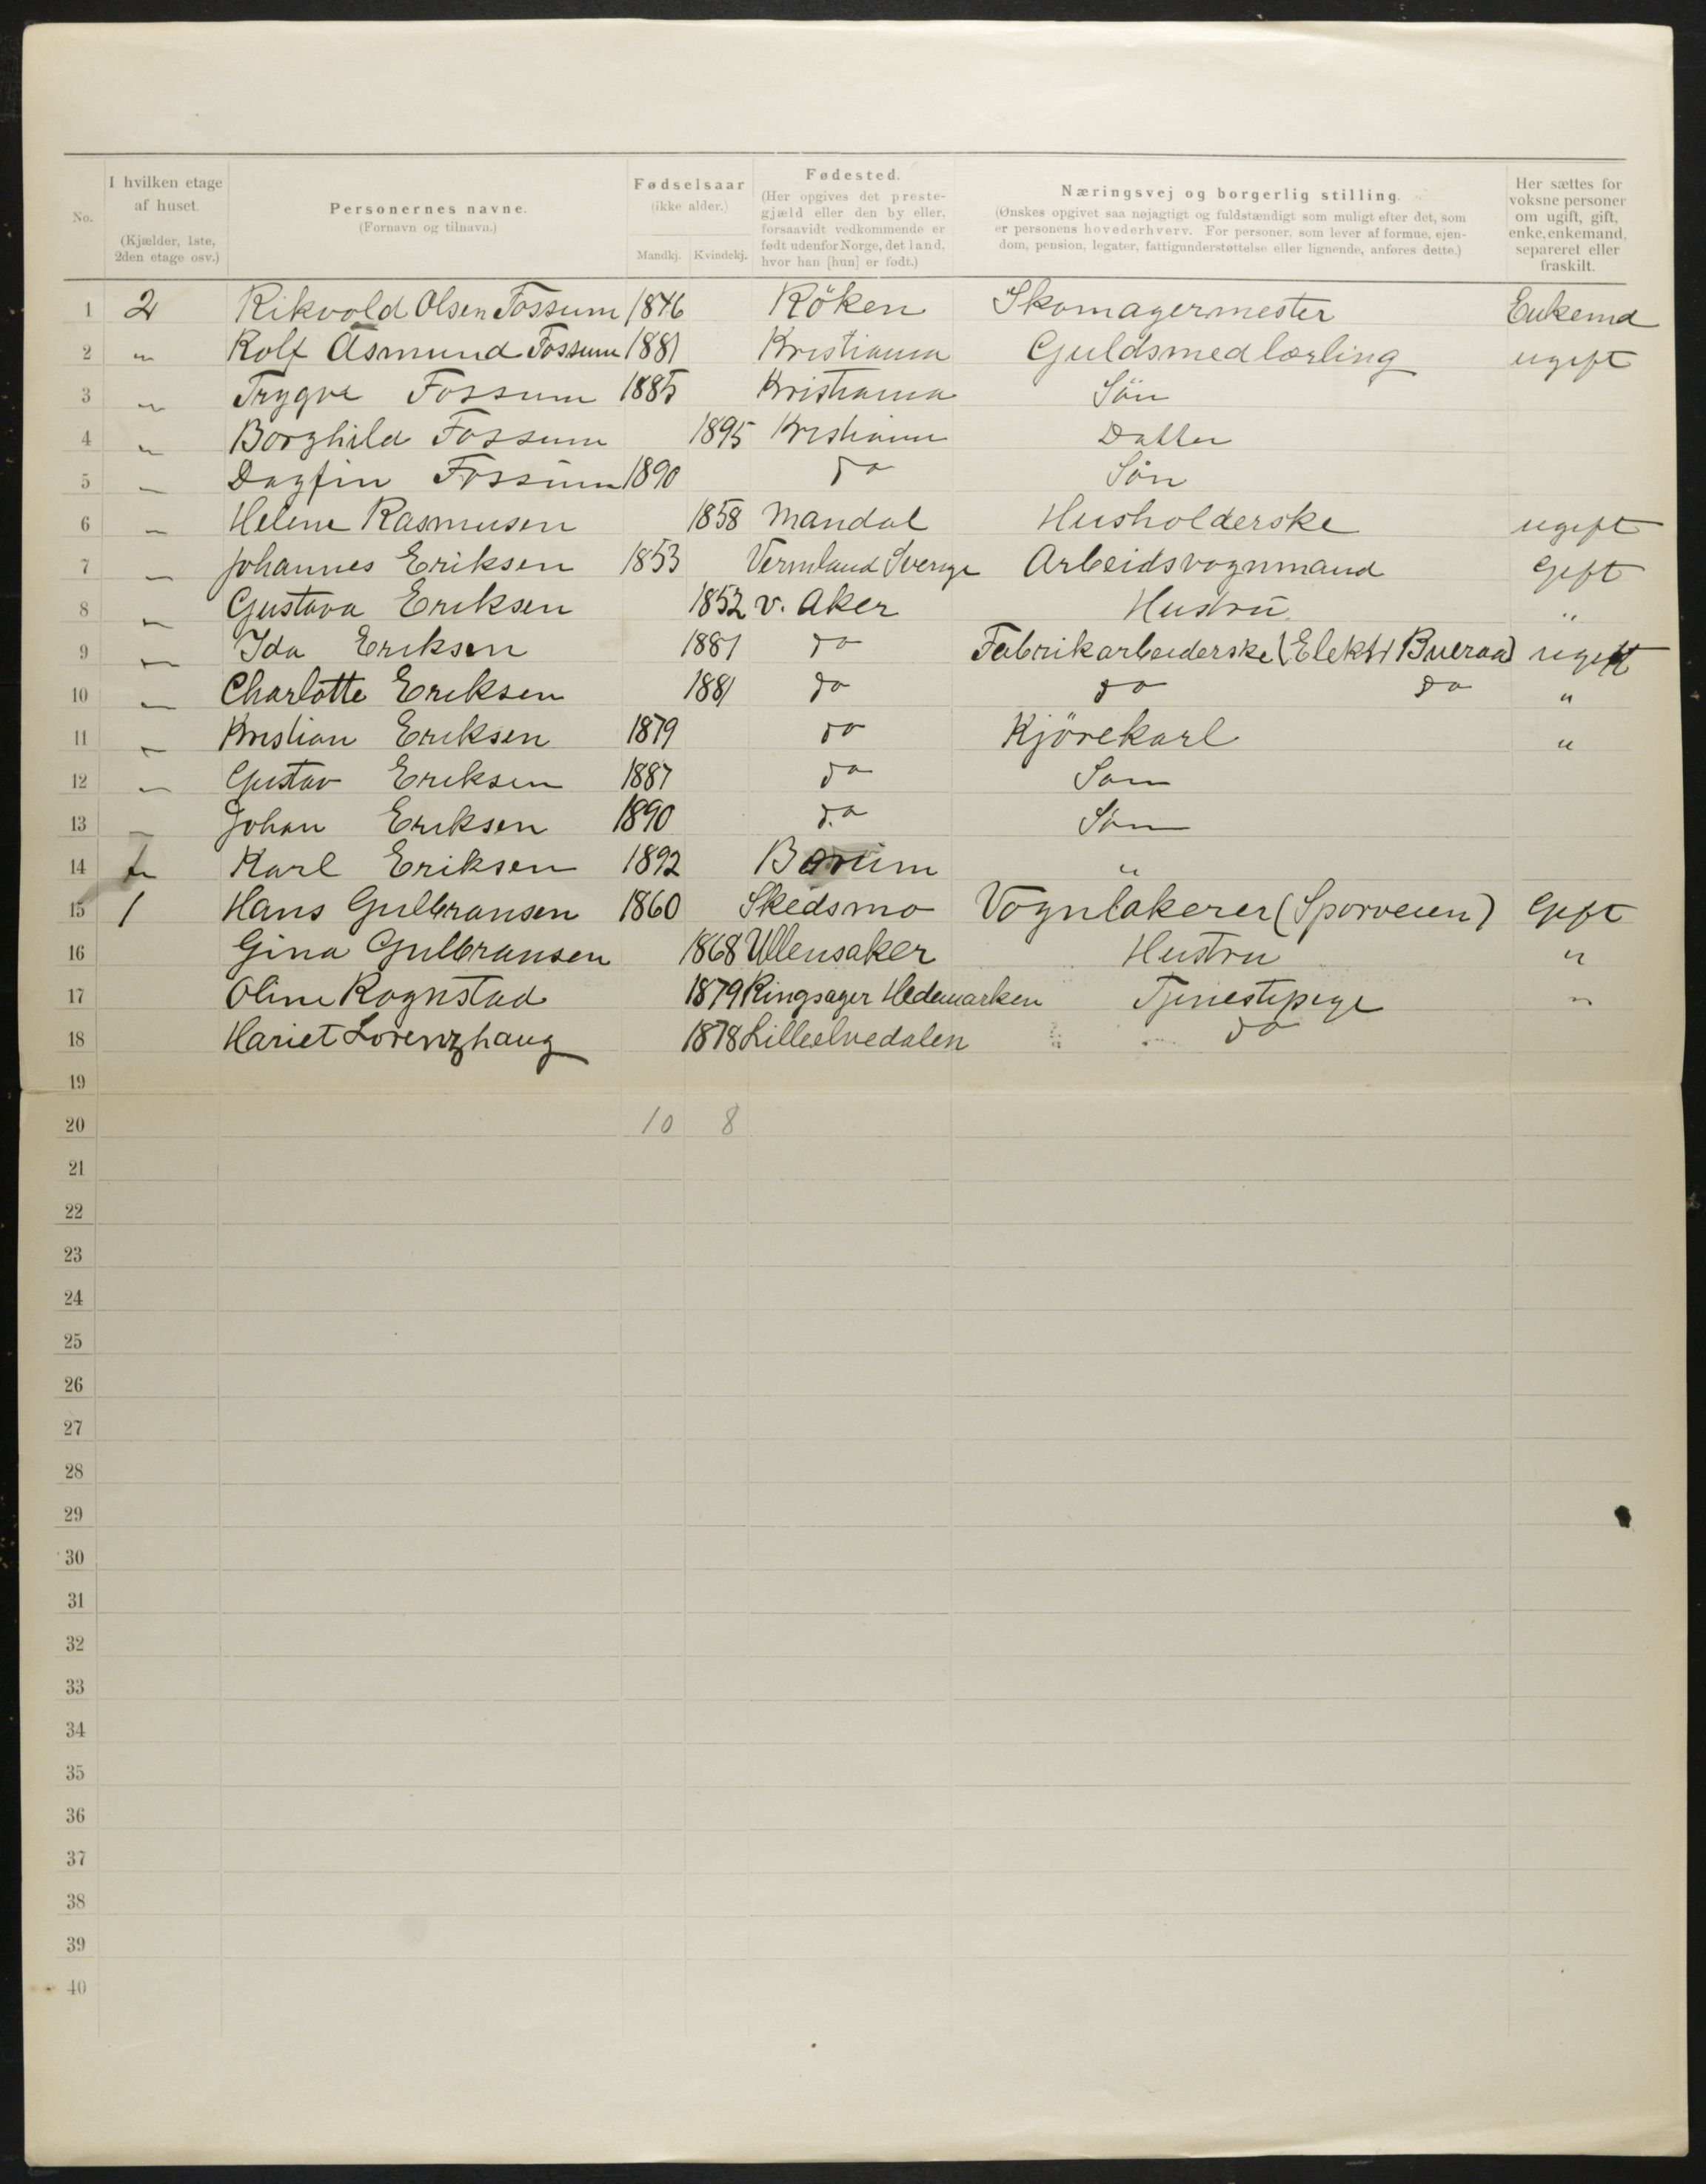 No. I hvilken etage af huset. (Kjælder, 1ste, 2den etage osv.) Personernes navne. (Fornavn og tilnavn.) Fødselsaar (ikke alder.) Mandkj. Kvindekj. Fødested. (Her opgives det prestegjæld eller den by eller, forsaavidt vedkommende er født udenfor Norge, det land, hvor han [hun] er født.) Næringsvej og borgerlig stilling. (Ønskes opgivet saa nøjagtigt og fuldstændigt som muligt efter det, som er personens hovederhverv. For personer, som lever af formue, ejendom, pension, legater, fattigunderstøttelse eller lignende, anføres dette.) Her sættes for voksne personer om ugift, gift, enke, enkemand, separeret eller fraskilt.
1 2 Rikvold Olsen Fossum 1846 Röken Skomagermester Enkemd
2 " Rolf Asmund Fossum 1881 Kristiania Guldsmedlærling ugift
3 " Trygve Fossum 1885 Kristiania Sön
4 " Borghild Fossum 1895 Kristiania Datter
5 " Dagfin Fossum 1890 do Sön
6 " Helene Rasmusen 1858 Mandal Husholderske ugift
7 " Johannes Eriksen 1853 Vermland Sverige Arbeidsvognmand Gift
8 " Gustava Eriksen 1852 V. Aker Hustru "
9 " Ida Eriksen 1881 do Fabrikarbeiderske (Elektr Bueraa) ugift
10 " Charlotte Eriksen 1881 do do do "
11 " Kristian Eriksen 1879 do Kjörekarl "
12 " Gustav Eriksen 1887 do Søn
13 " Johan Eriksen 1890 do Søn
14 Karl Eriksen 1892 Bærum "
15 1 Hans Gulbransen 1860 Skedsmo Vognlakerer (Sporveien) Gift
16 Gina Gulbransen 1868 Ullensaker Hustru "
17 Oline Rognstad 1879 Ringsager Hedemarken Tjenestepige "
18 Hariet Lorenzhaug 1878 Lilleelvedalen do
19
20 10 8
21
22
23
24
25
26
27
28
29
30
31
32
33
34
35
36
37
38
39
40